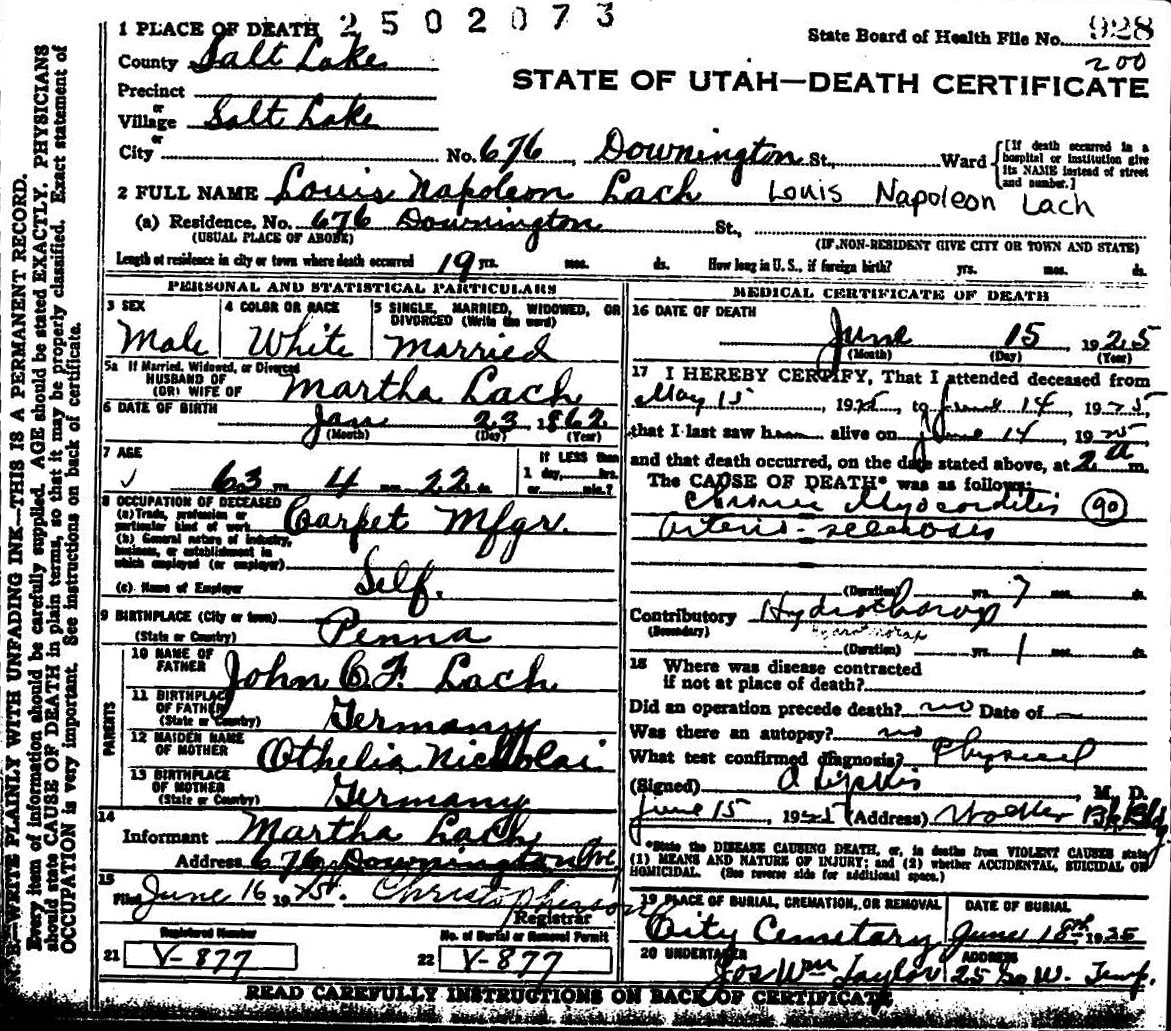 2502073
1 PLACE OF DEATH
State Board of Health File No. 928
200
County Salt Lake
STATE OF UTAH—DEATH CERTIFICATE
Precinct
or
Village Salt Lake
or
City No. 676 Downington St., Ward
[If death occurred in a hospital or institution give its NAME instead of street and number.]
2 FULL NAME Louis Napoleon Lach Louis Napoleon Lach
(a) Residence. No. 676 Downington St.,
(USUAL PLACE OF ABODE) (IF NON-RESIDENT GIVE CITY OR TOWN AND STATE)
Length of residence in city or town where death occurred 19 yrs. mos. ds. How long in U. S., if foreign birth? yrs. mos. ds.
PERSONAL AND STATISTICAL PARTICULARS
3 SEX
Male
4 COLOR OR RACE
White
5 SINGLE, MARRIED, WIDOWED, OR DIVORCED (Write the word)
Married
5a If Married, Widowed, or Divorced
HUSBAND OF
(OR) WIFE OF Martha Lach
6 DATE OF BIRTH
Jan 23 1862
(Month) (Day) (Year)
7 AGE
63 yrs. 4 mos. 22 ds.
IF LESS than
1 day, hrs.
or min.?
8 OCCUPATION OF DECEASED
(a) Trade, profession or
particular kind of work Carpet Mfgr.
(b) General nature of industry,
business, or establishment in
which employed (or employer)
(c) Name of Employer Self.
9 BIRTHPLACE (City or town)
(State or Country) Penna
PARENTS
10 NAME OF FATHER John C F. Lach
11 BIRTHPLACE OF FATHER
(State or Country) Germany
12 MAIDEN NAME OF MOTHER Othelia Nickolai
13 BIRTHPLACE OF MOTHER
(State or Country) Germany
14
Informant Martha Lach
Address 676 Downington Ave
15
Filed June 16 1925. Christopherson
Registrar
Registered Number
21 V-877
No. of Burial or Removal Permit
22 V-877
MEDICAL CERTIFICATE OF DEATH
16 DATE OF DEATH
June 15 1925
(Month) (Day) (Year)
17 I HEREBY CERTIFY, That I attended deceased from
May 15, 1925, to June 14, 1925,
that I last saw h alive on June 14, 1925
and that death occurred, on the date stated above, at 2 a m.
The CAUSE OF DEATH* was as follows:
Chronic Myocarditis 90
Arterio-sclerosis
(Duration) yrs. 7 ds.
Contributory Hydrothorax
(Secondary) Hydrothorax
(Duration) yrs. 1 ds.
18 Where was disease contracted
if not at place of death?
Did an operation precede death? no Date of —
Was there an autopsy? no
What test confirmed diagnosis? Physical
(Signed) M. D.
June 15, 1925 (Address) Bldg
*State the DISEASE CAUSING DEATH, or, in deaths from VIOLENT CAUSES state
(1) MEANS AND NATURE OF INJURY; and (2) whether ACCIDENTAL, SUICIDAL OR
HOMICIDAL. (See reverse side for additional space.)
19 PLACE OF BURIAL, CREMATION, OR REMOVAL
City Cemetary
DATE OF BURIAL
June 18th 1925
20 UNDERTAKER
Jos Wm Taylor
ADDRESS
25 So W. Temp.
READ CAREFULLY INSTRUCTIONS ON BACK OF CERTIFICATE
N. B.—WRITE PLAINLY WITH UNFADING INK—THIS IS A PERMANENT RECORD.
Every item of information should be carefully supplied. AGE should be stated EXACTLY. PHYSICIANS
should state CAUSE OF DEATH in plain terms, so that it may be properly classified. Exact statement of
OCCUPATION is very important. See instructions on back of certificate.